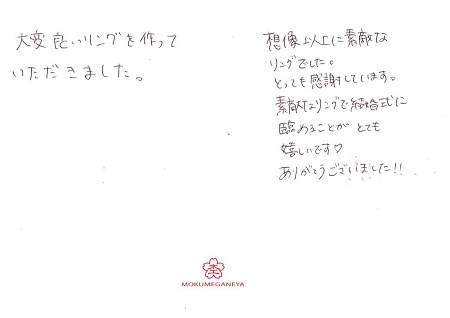 大変良いリングを作って
いただきました。
想像以上に素敵な
リングでした。
とっても感謝しています。
素敵なリングで結婚式に
臨めることがとても
嬉しいです♡
ありがとうございました!!
MOKUMEGANEYA